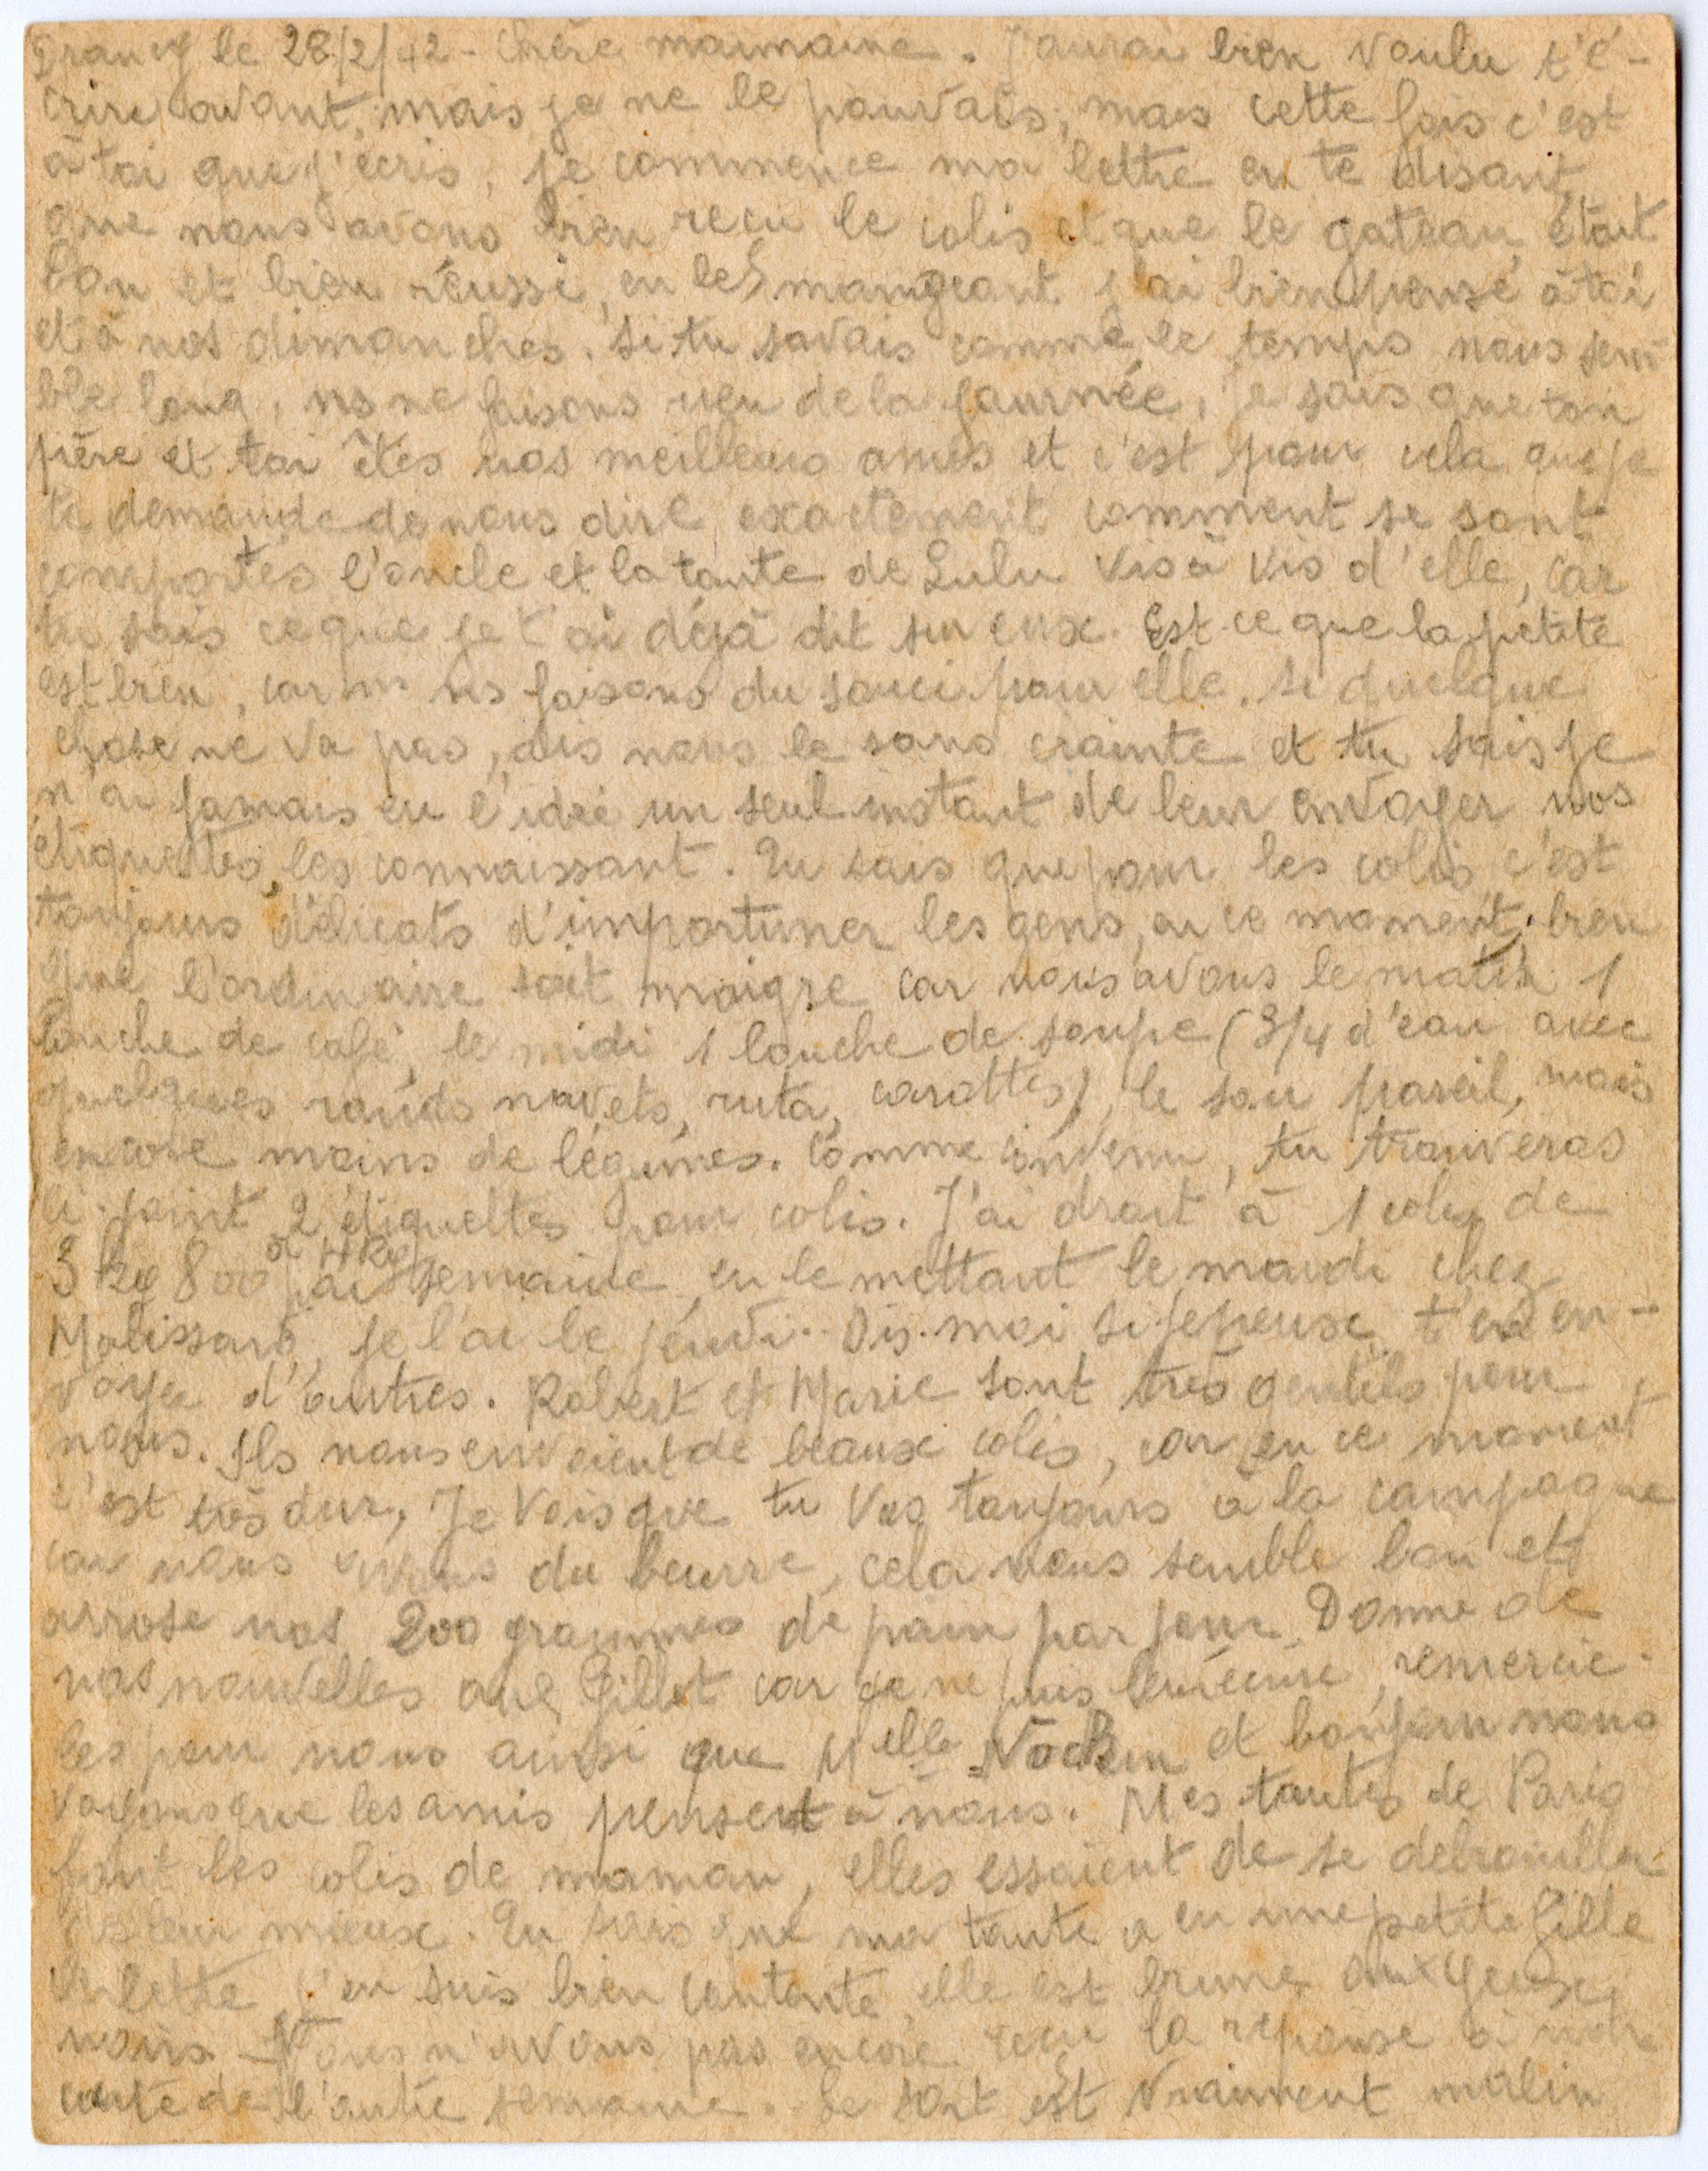 Drancy le 28/2/42 - Chère maimaine. J'aurai bien voulu t'é-
crire avant, mais je ne le pouvais, mais cette fois c'est
à toi que j'écris, je commence ma lettre en te disant
que nous avons bien recu le colis et que le gateau était
bon et bien réussi, en le mangeant j'ai bien pensé à toi
et à nos dimanches. Si tu savais comme le temps nous sem-
ble long, ns ne faisons rien de la journée, je sais que ton
père et toi êtes nos meilleurs amis et c'est pour cela que je
te demande de nous dire exactement comment se sont
comportés l'oncle et la tante de Lulu vis à vis d'elle, car
tu sais ce que je t'ai déjà dit sur eux. Est-ce que la petite
est bien, car ns faisons du souci pour elle. Si quelque
chose ne va pas, dis nous le sans crainte et tu sais je
n'ai jamais eu l'idée un seul instant de leur envoyer nos
étiquettes, les connaissant. Tu sais que pour les colis c'est
toujours délicats d'importuner les gens, en ce moment, bien
que l'ordinaire soit maigre car nous avons le matin 1
louche de café, le midi 1 louche de soupe (3/4 d'eau avec
quelques ronds navets, ruta, carottes), le soir pareil, mais
encore moins de légumes. Comme convenu, tu trouveras
ci-joint 2 étiquettes pour colis. J'ai droit à 1 colis de
3 kg 800 à 4 Kg par semaine en le mettant le mardi chez
Malissard, je l'ai le jeudi. Dis-moi si je peux t'en en-
voyer d'autres. Robert et Marie sont très gentils pour
nous. Ils nous envoient de beaux colis, car en ce moment
c'est très dur, Je vois que tu vas toujours à la campagne
car nous avons du beurre, cela nous semble bon et
arrose nos 200 grammes de pain par jour. Donne de
nos nouvelles aux Gillet car je ne puis leur écrire, remercie-
les pour nous ainsi que Melle et bonjour nous
voyons que les amis pensent à nous. Mes tantes de Paris
font les colis de maman, elles essaient de se debrouiller
de leur mieux. Tu sais que ma tante a eu une petite fille
Arlette, j'en suis bien contente, elle est brune aux yeux
noirs - Nous n'avons pas encore recu la reponse à notre
carte de l'autre semaine. Le sort est vraiment malin